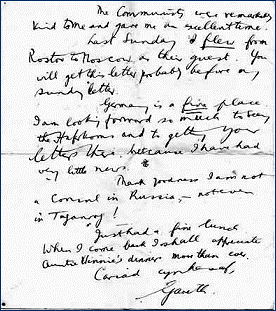 The Communists were remarkably
kind to me and gave me an excellent time.
Last Sunday I flew from
Rostov to Moscow as their guest. You
will get this letter probably before my
Sunday letter.
Germany is a fine place.
I am looking forward so much to seeing
the Haferkorns and to getting your
letters there, because I have had
very little news.
Thank goodness I am not
a Consul in Russia, - not even
in Taganrog!
Just had a fine lunch.
When I come back I shall appreciate
Auntie Winnie's dinner more than ever.
Cariad cynhesaf,
Gareth.